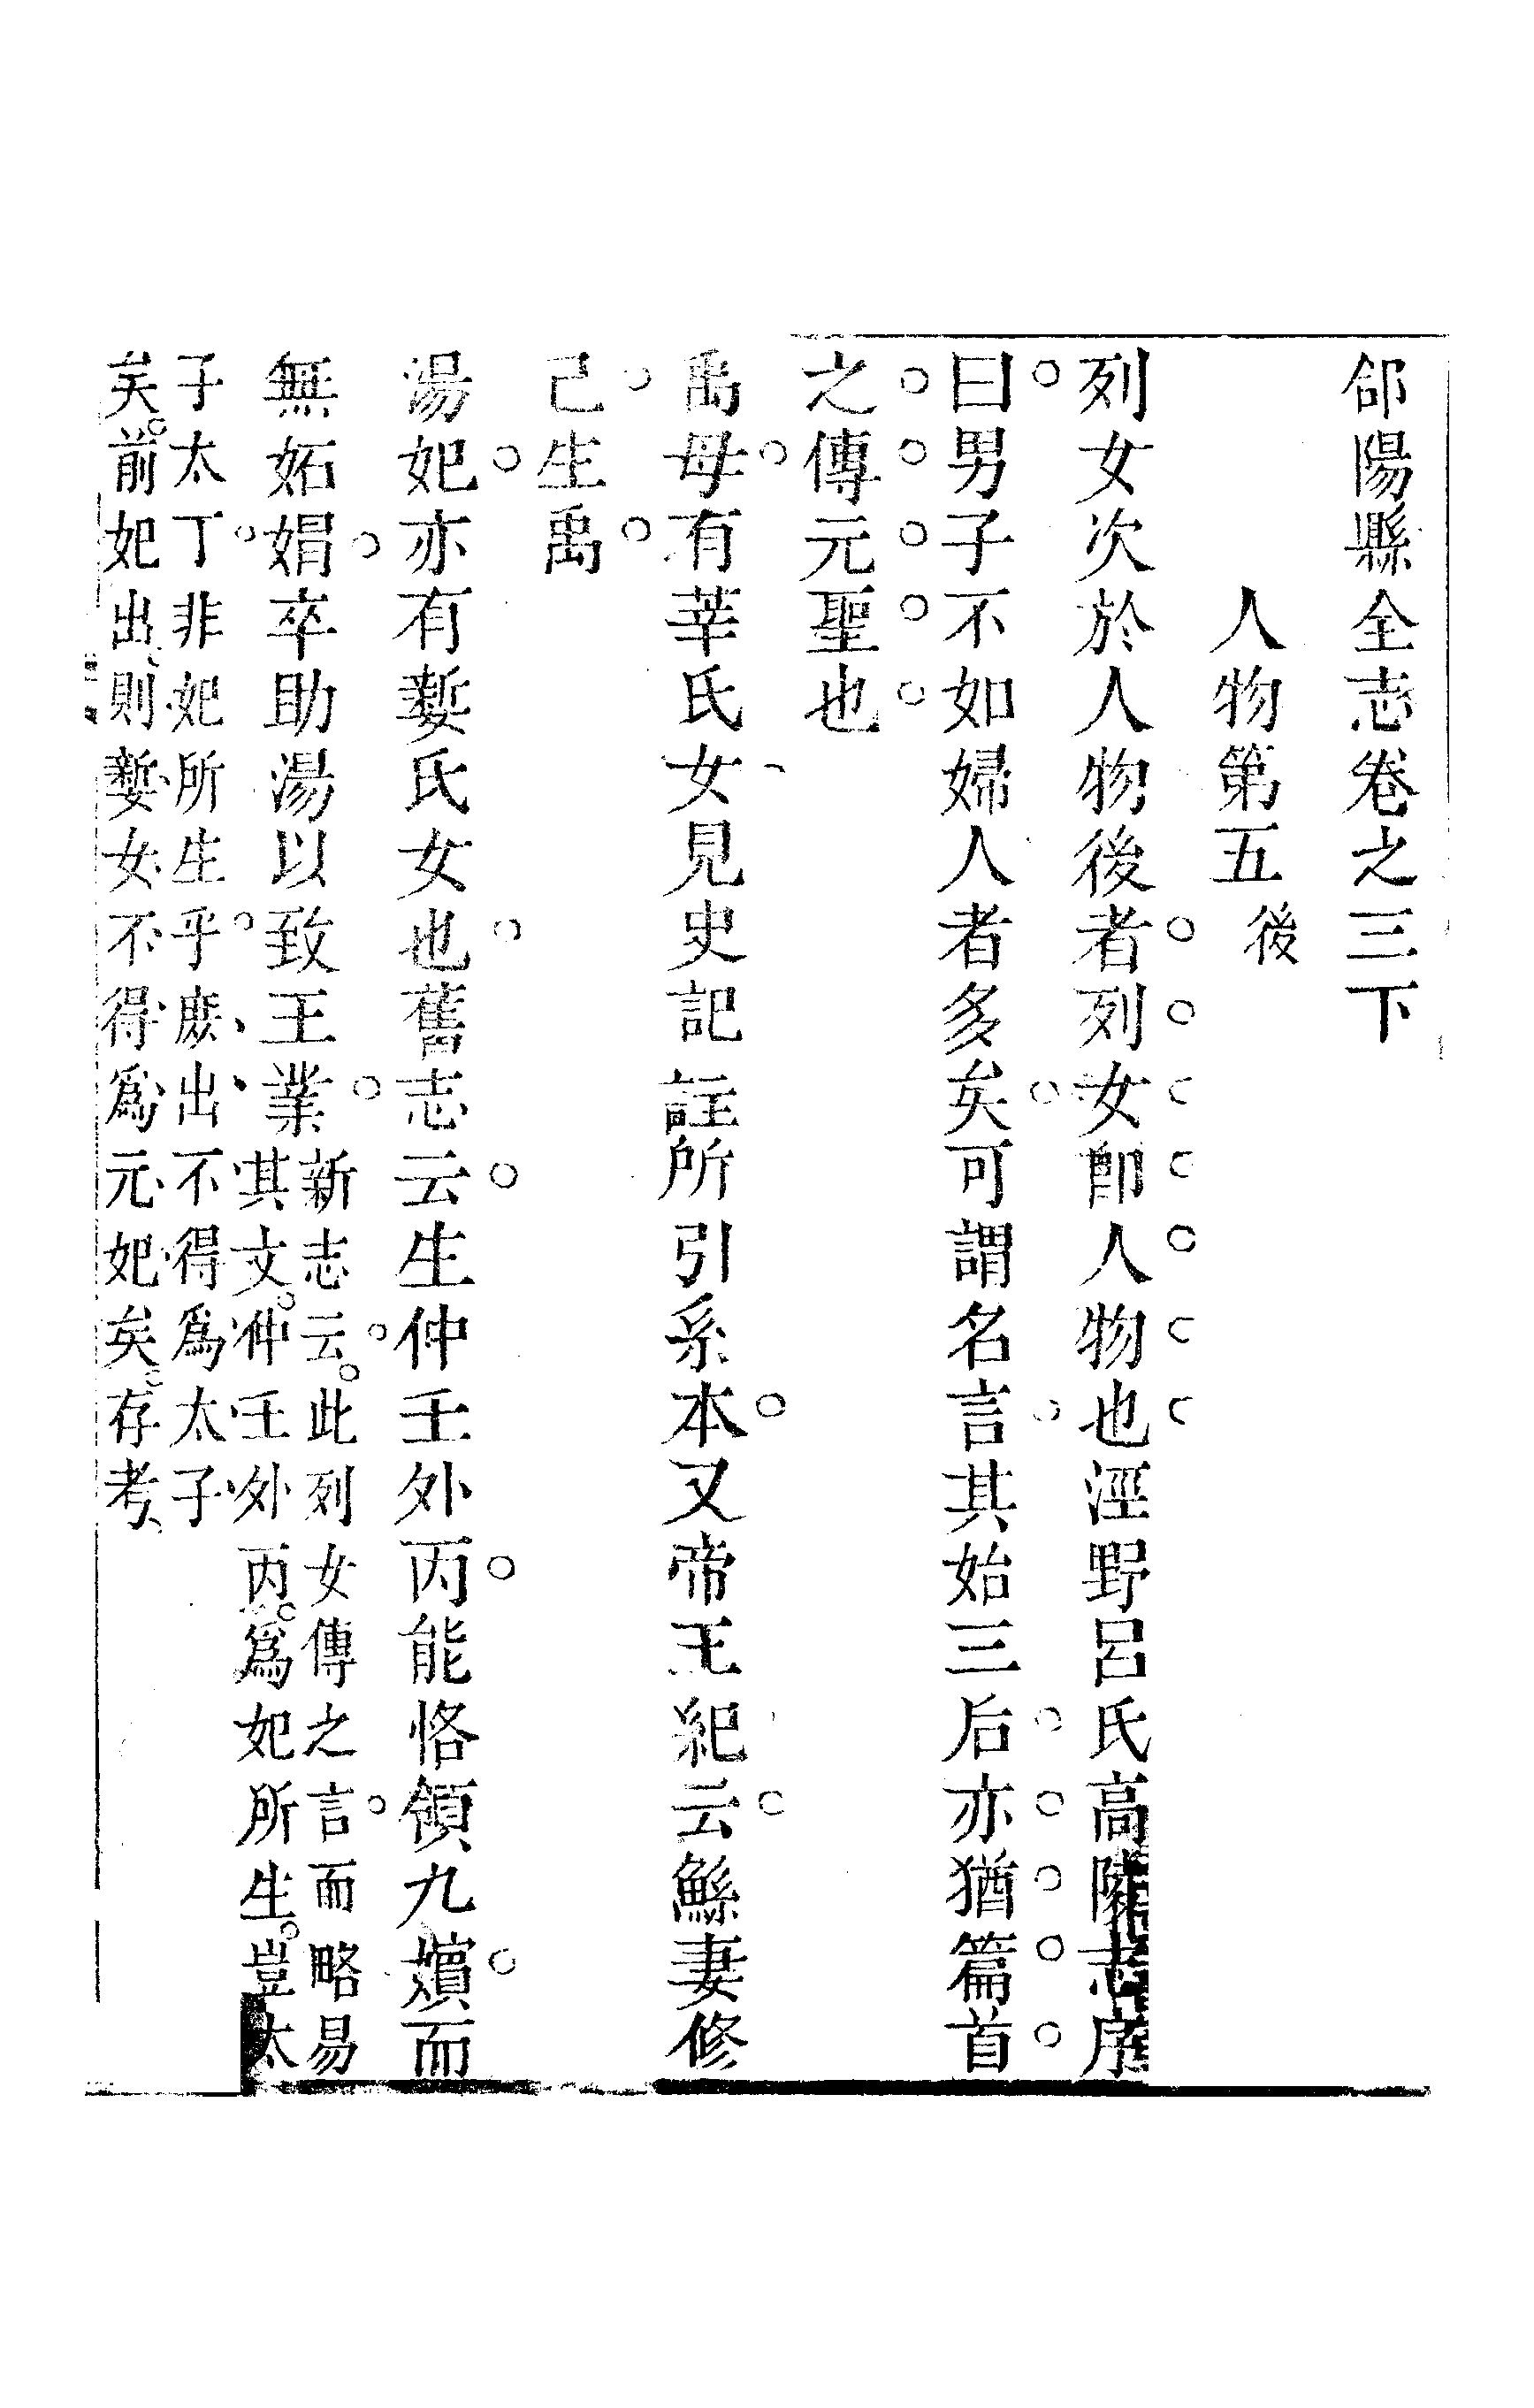 郃陽縣全志卷之三下
人物第五後
列女次於人物後者列女卽人物也涇野呂氏高陵志序
曰男子不如婦人者多矣可謂名言其始三后亦猶篇首
之傳元聖也
禹母有莘氏女見史記註所引系本又帝王紀云鯀妻修
己生禹
湯妃亦有㜪氏女也舊志云生仲壬外丙能恪領九嬪而
無妬媢卒助湯以致王業
新志云此列女傳之言而略易
其文仲壬外丙爲妃所生豈太
子太丁非妃所生乎庶出不得爲太子
矣前妃出則㜪女不得爲元妃矣存考